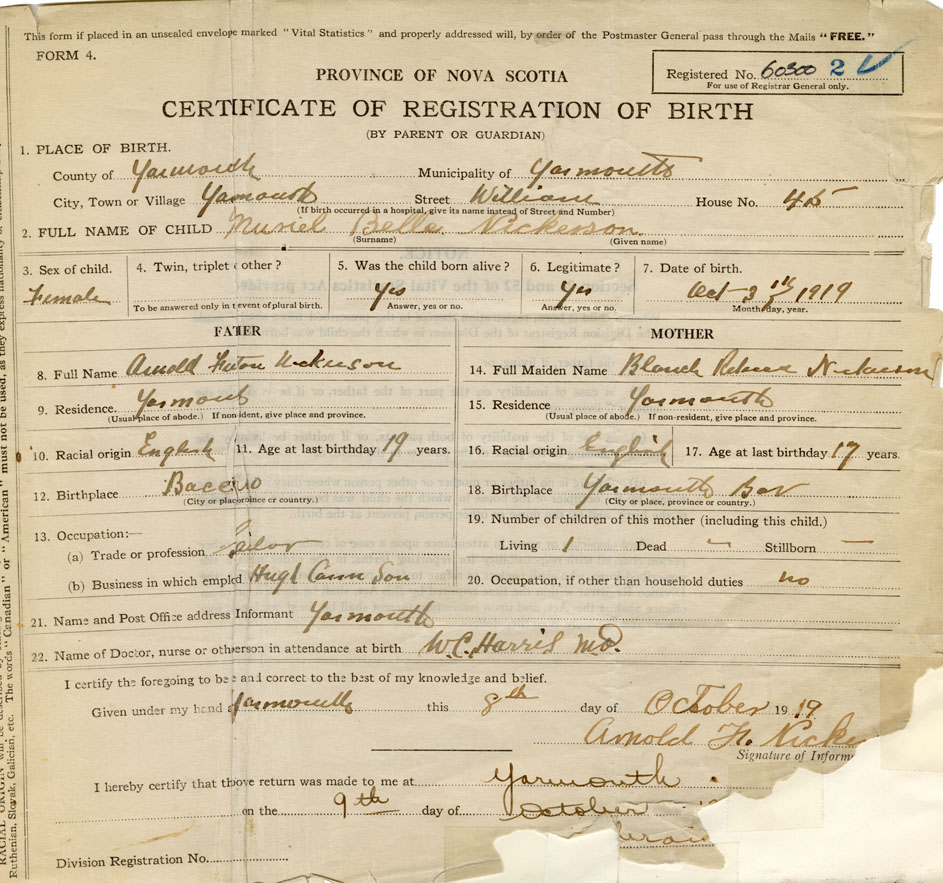 This form if placed in an unsealed envelope marked "Vital Statistics" and properly addressed will, by order of the Postmaster General pass through the Mails "FREE."
FORM 4.
PROVINCE OF NOVA SCOTIA
Registered No. 60300 2
For use of Registrar General only.
CERTIFICATE OF REGISTRATION OF BIRTH
(BY PARENT OR GUARDIAN)
1. PLACE OF BIRTH.
County of Yarmouth Municipality of Yarmouth
City, Town or Village Yarmouth Street William House No. 45
(If birth occurred in a hospital, give its name instead of Street and Number)
2. FULL NAME OF CHILD Muriel Belle Nickerson
(Surname) (Given name)
3. Sex of child. 4. Twin, triplet other? 5. Was the child born alive? 6. Legitimate? 7. Date of birth.
Female Yes Yes Oct 3 1919
To be answered only in event of plural birth. Answer, yes or no. Answer, yes or no. Month, day, year.
FATHER MOTHER
8. Full Name Arnold Nickerson 14. Full Maiden Name Blanch Nickerson
9. Residence. Yarmouth 15. Residence Yarmouth
(Usual place of abode.) If non-ident, give place and province. (Usual place of abode.) If non-resident, give place and province.
10. Racial origin English 11. Age at last birthday 19 years. 16. Racial origin English 17. Age at last birthday 17 years
12. Birthplace 18. Birthplace Yarmouth Bar
(City or place, province or country.)
19. Number of children of this mother (including this child.)
13. Occupation:—
(a) Trade or profession Living 1 Dead — Stillborn —
(b) Business in which empled Hugh Cann Son 20. Occupation, if other than household duties no
21. Name and Post Office address Informant Yarmouth
22. Name of Doctor, nurse or otherson in attendance at birth W.C. Harris M.D.
I certify the foregoing to be and correct to the best of my knowledge and belief.
Given under my hand Yarmouth this 8th day of October 1919
Arnold F. Nicke
Signature of Inform
I hereby certify that thbove return was made to me at Yarmouth
on the 9th day of October
Division Registration No.